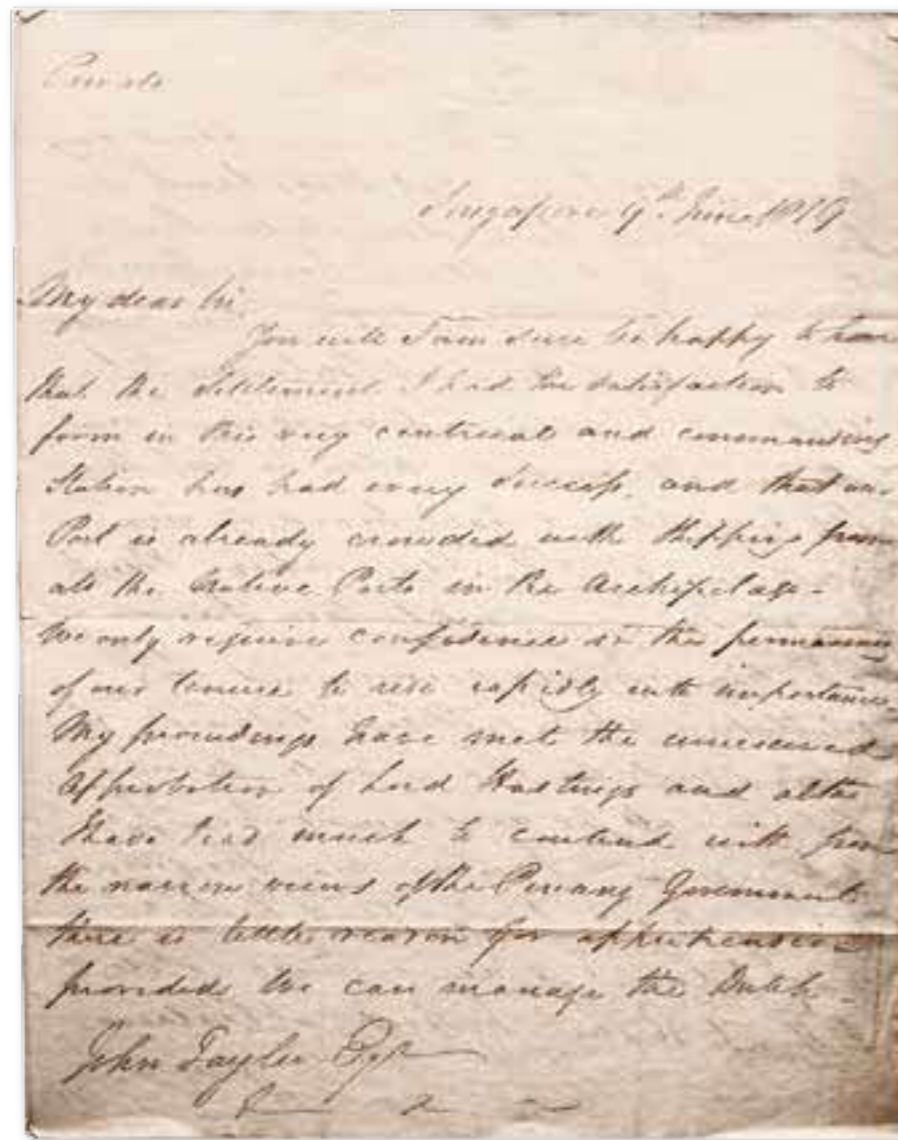 Private
Singapore 9th June 1819
My dear Sir,
You will I am sure be happy to hear
that the Settlement I had the satisfaction to
form in this very centrical and commanding
Station has had every success, and that our
Port is already crowded with shipping from
all the Native Ports in the Archipelago -
We only require confidence in the permanency
of our tenure to rise rapidly into importance
My proceedings have met the unreserved
Approbation of Lord Hastings and altho
I have had much to contend with from
the narrow views of the Penang Government
there is little reason for apprehension
provided we can manage the Dutch -
John Tayler Esqr